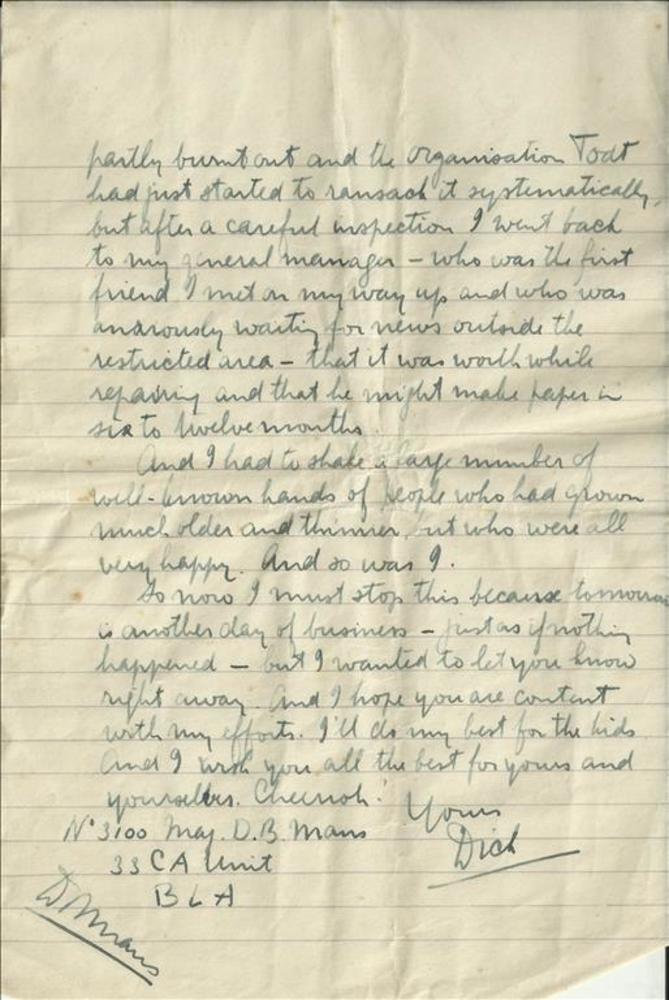 partly burnt out and the Organisation Todt
had just started to ransack it systematically,
but after a careful inspection I went back
to my general manager – who was the first
friend I met on my way up and who was
anxiously waiting for news outside the
restricted area – that it was worth while
repairing and that he might make paper in
six to twelve months.
And I had to shake a large number of
well-known hands of people who had grown
much older and thinner, but who were all
very happy. And so was I.
So now I must stop this because tomorrow
is another day of business – just as if nothing
happened – but I wanted to let you know
right away. And I hope you are content
with my efforts. I'll do my best for the kids.
And I wish you all the best for yours and
yourselves. Cheerioh! Yours
Dick
N° 3100 Maj. D.B. Mans
33 CA Unit
BLA
D Mans